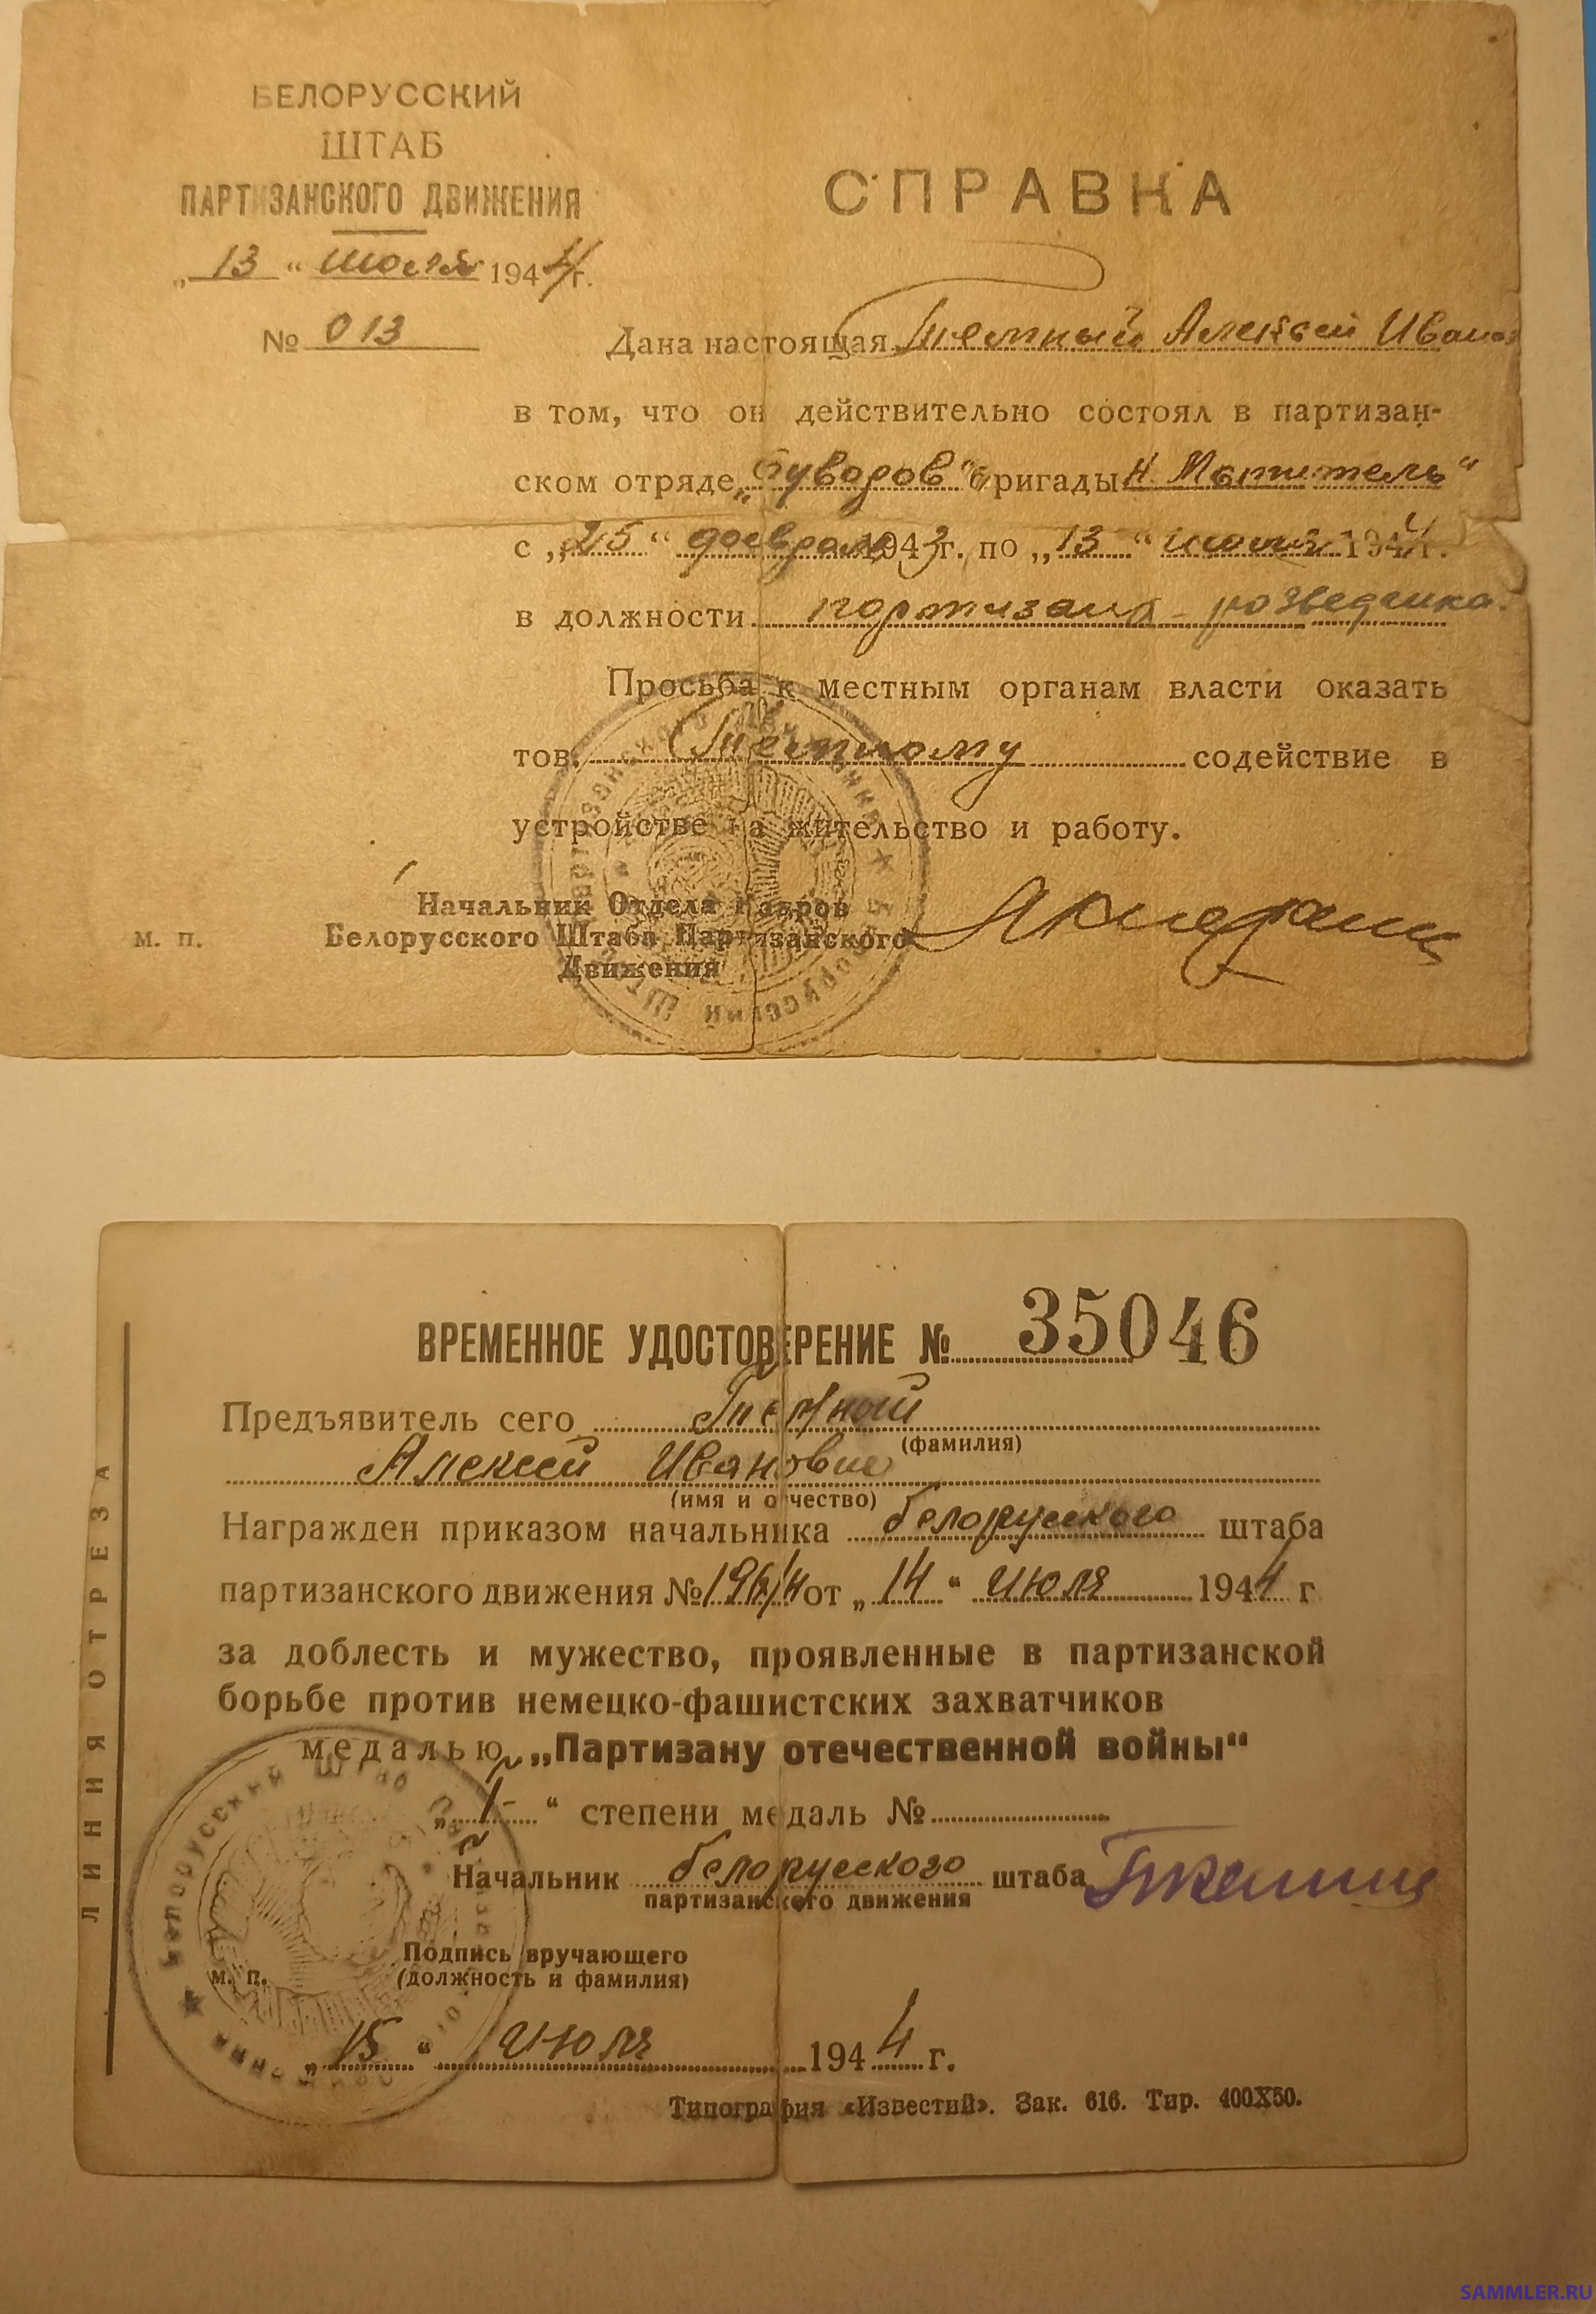 БЕЛОРУССКИЙ
ШТАБ
ПАРТИЗАНСКОГО ДВИЖЕНИЯ
„13“ июля 1944г.
№ 013
СПРАВКА
Дана настоящая Темный Алексей Иванов
в том, что он действительно состоял в партизан-
ском отряде „Суворов“ бригады „Н. Мститель“
с „25“ февраля 1943г. по „13“ июля 1944г.
в должности партизана-розведчика.
Просьба к местным органам власти оказать
тов. Темному содействие в
устройстве на жительство и работу.
Начальник Отдела Кадров
м. п. Белорусского Штаба Партизанского
Движения
ЛИНИЯ ОТРЕЗА
ВРЕМЕННОЕ УДОСТОВЕРЕНИЕ № 35046
Предъявитель сего Темный
(фамилия)
Алексей Иванович
(имя и отчество)
Награжден приказом начальника белорусского штаба
партизанского движения № от „14“ июля 1944 г
за доблесть и мужество, проявленные в партизанской
борьбе против немецко-фашистских захватчиков
медалью „Партизану отечественной войны“
„1-“ степени медаль №
Начальник белорусского штаба
партизанского движения
Подпись вручающего
м. п. (должность и фамилия)
„15“ июля 1944 г.
Типография «Известий». Зак. 616. Тир. 400X50.
SAMMLER.RU